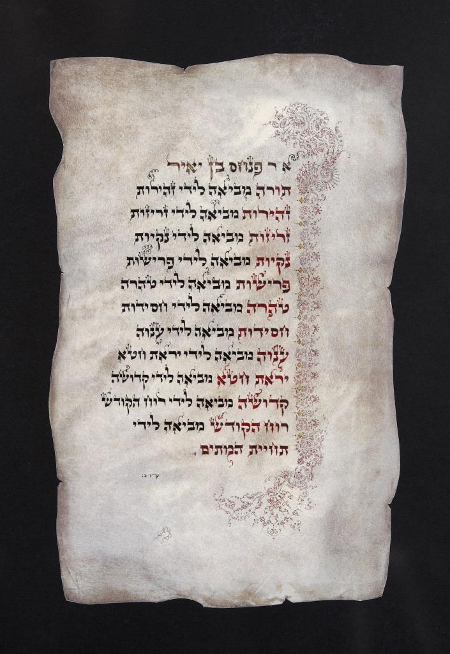 א ר פנחס בן יאיר
תורה מביאה לידי זהירות
זהירות מביאה לידי זריזות
זריזות מביאה לידי נקיות
נקיות מביאה לידי פרישות
פרישות מביאה לידי טהרה
טהרה מביאה לידי חסידות
חסידות מביאה לידי ענוה
ענוה מביאה לידי יראת חטא
יראת חטא מביאה לידי קדושה
קדושה מביאה לידי רוח הקודש
רוח הקודש מביאה לידי
תחיית המתים